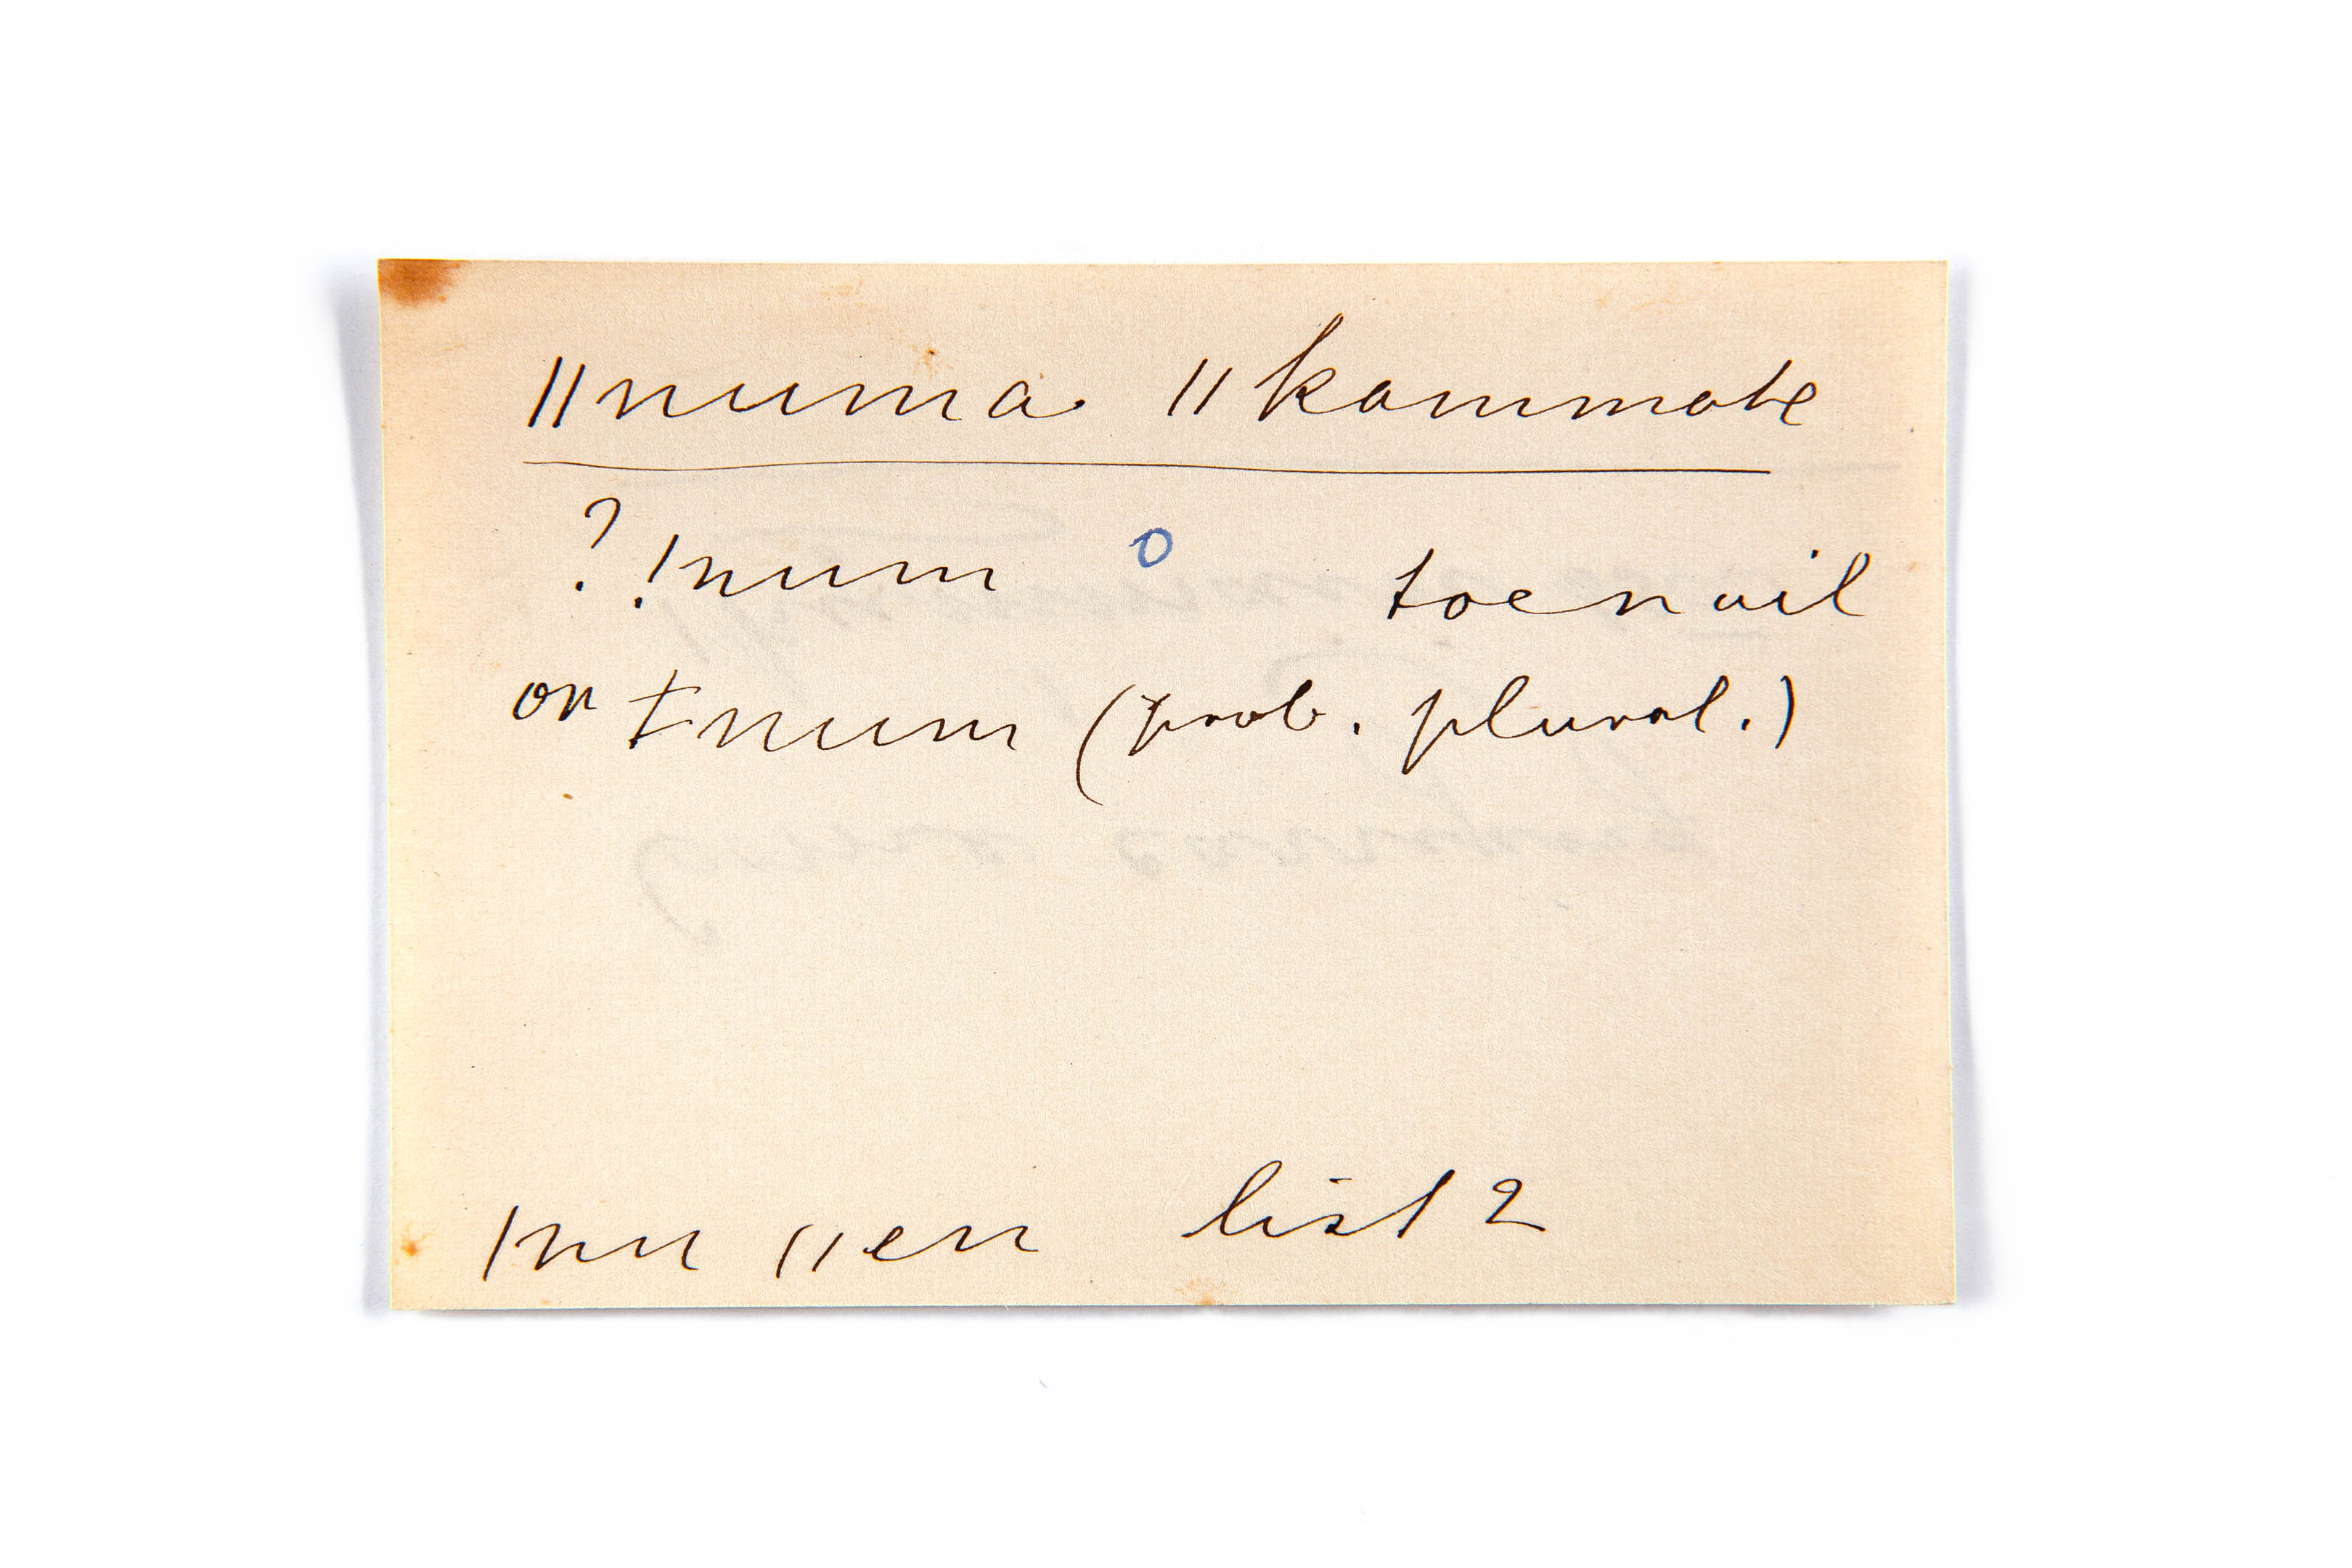 ǁnuma ǁkammate
? ǃnum o toenail
or ǂnum (prob. plural.)
ǀnu ǁen list 2